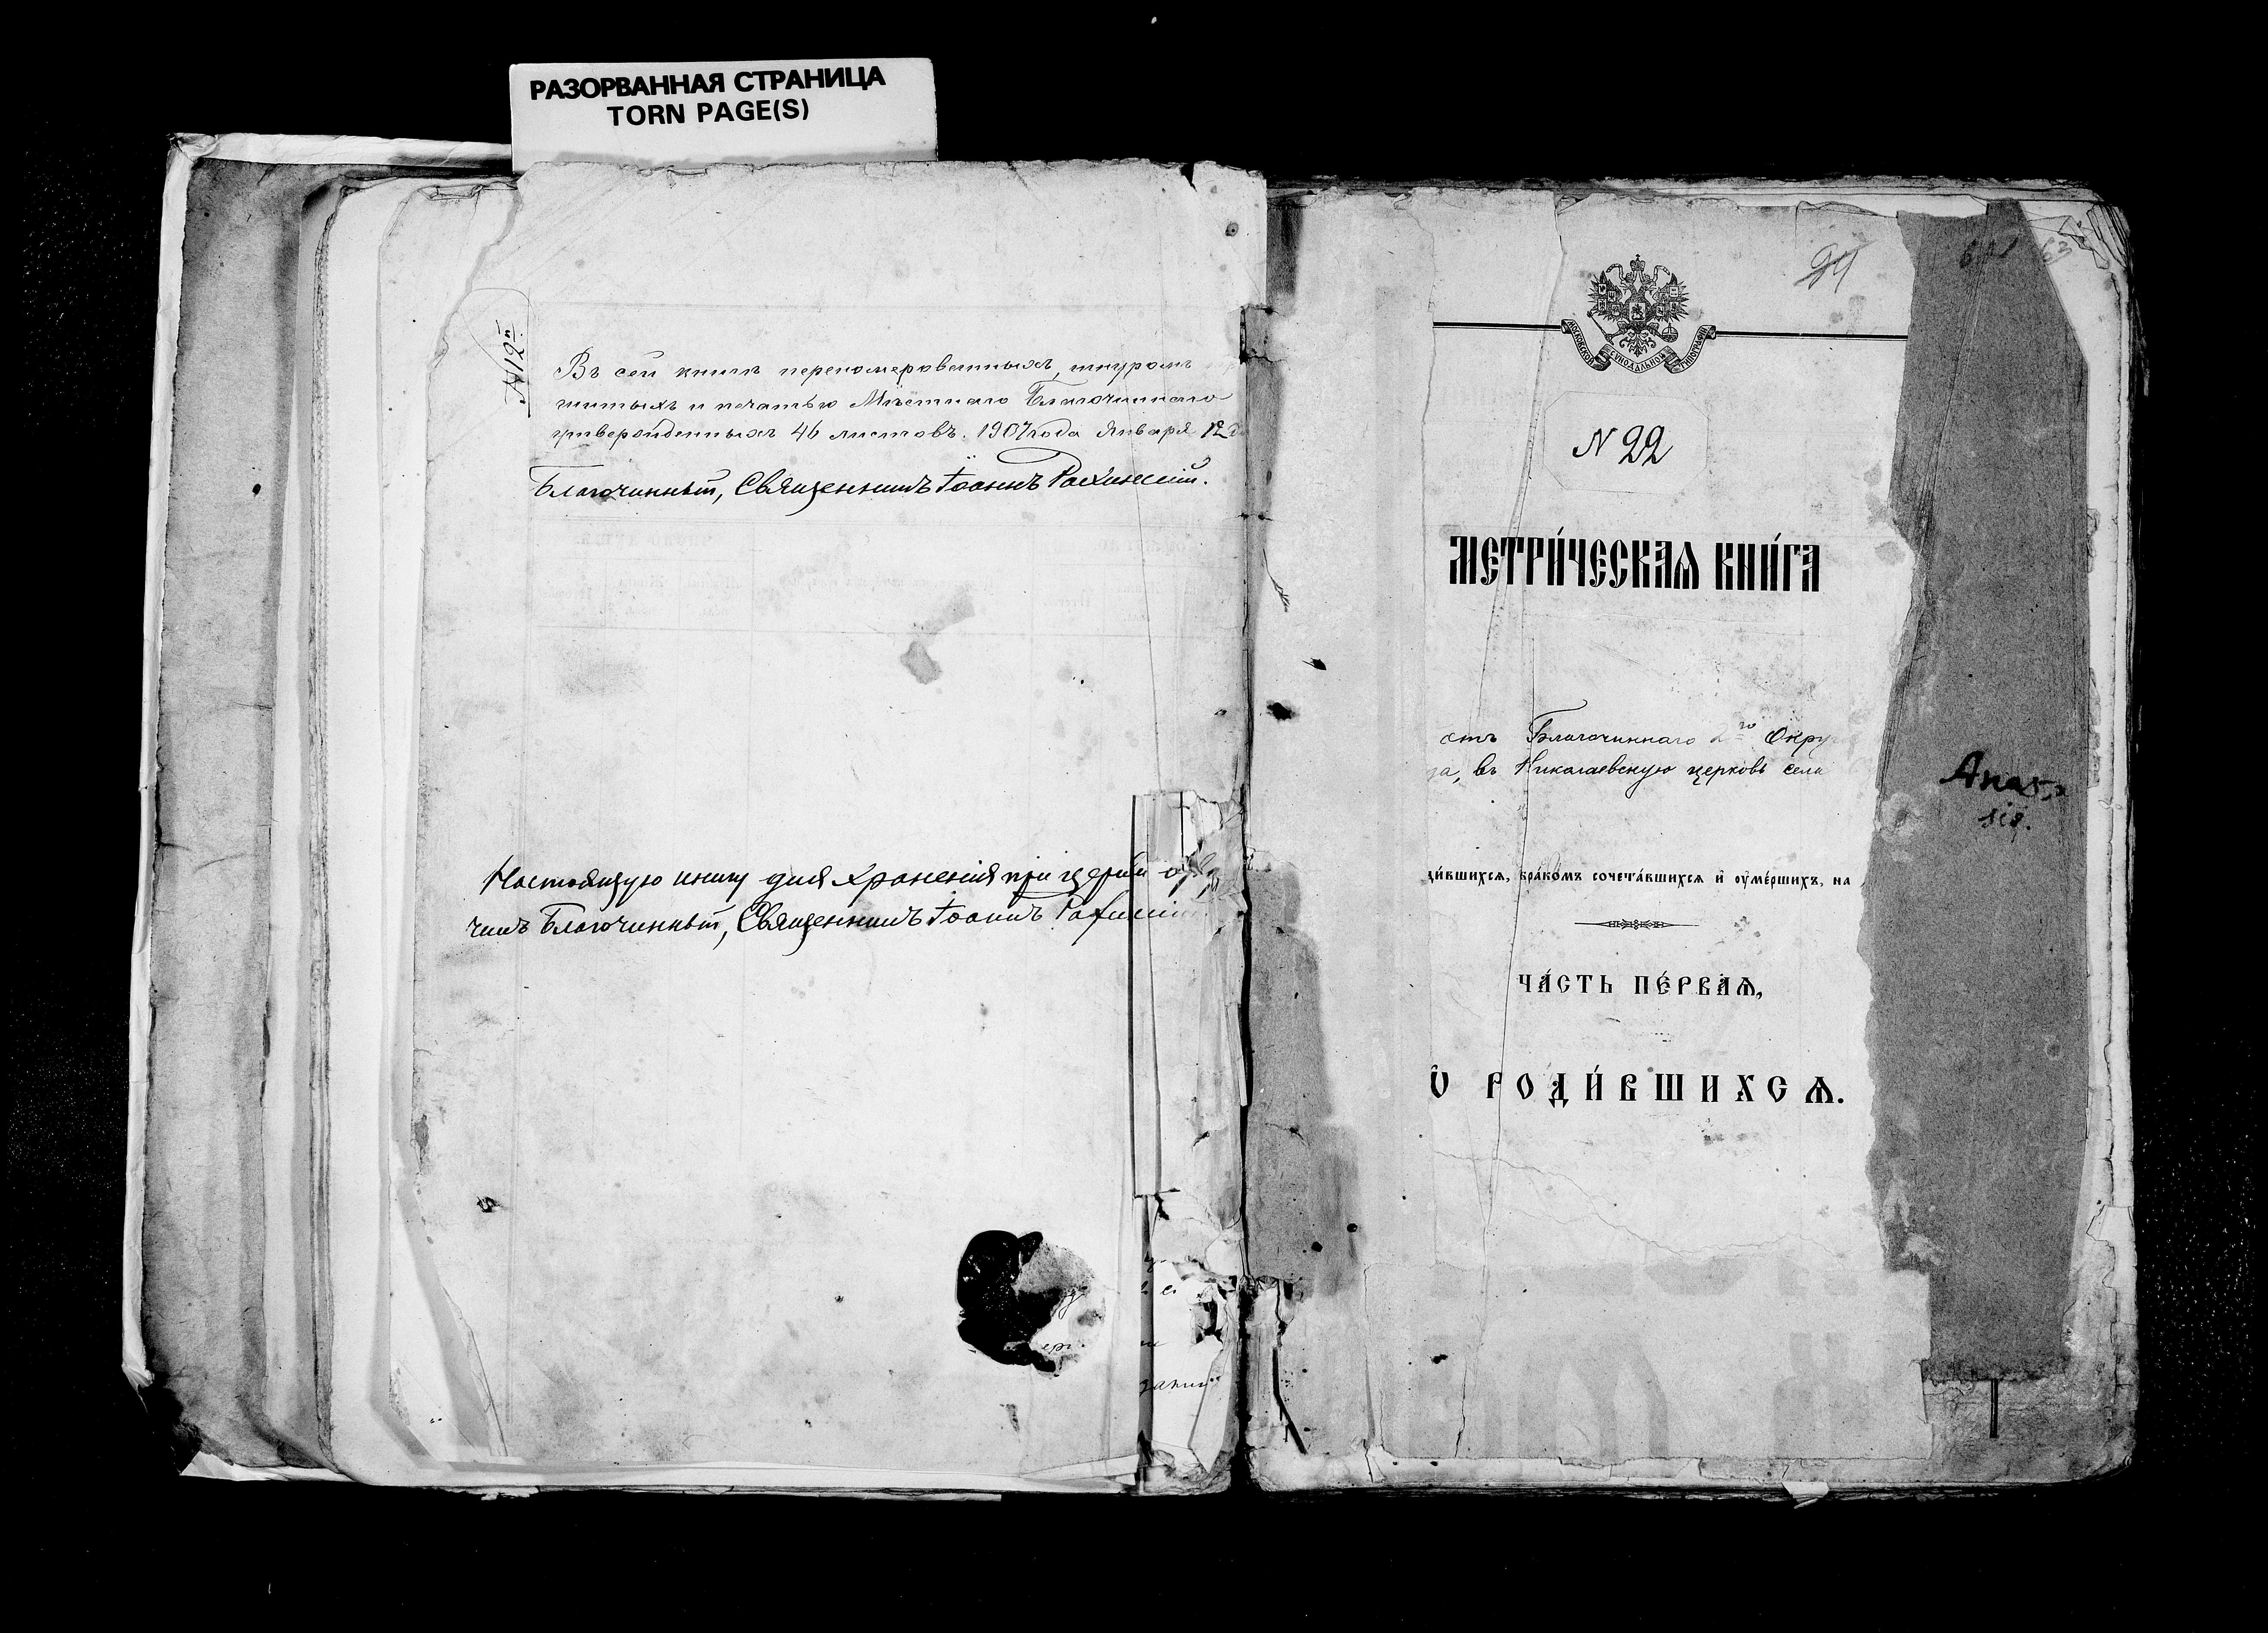 РАЗОРВАННАЯ СТРАНИЦА
TORN PAGE(S)
№12й
Въ сей книгѣ перенумерованныхъ, шнуромъ
шитыхъ и печатью Мѣстнаго Благочиннаго
утвержденныхъ 46 листовъ. 1907 года Января 12
Благочинный, Священникъ Іоаннъ
Настоящую книгу для храненія при церкви
чилъ Благочинный, Священникъ Іоаннъ
МОСКОВСКОЙ СѴНОДАЛЬНОЙ ТИПОГРАФІИ
N 22
МЕТРИ́ЧЕСКАѦ КНИ́ГА
отъ Благочиннаго 2го Окру
да, въ Николаевскую церковь села
ди́вшихсѧ, бра́комъ сочета́вшихсѧ и҆ ᲂу҆ме́ршихъ, на
ЧА́СТЬ ПЕ́РВАѦ,
Ѡ РОДИ́ВШИХСѦ.